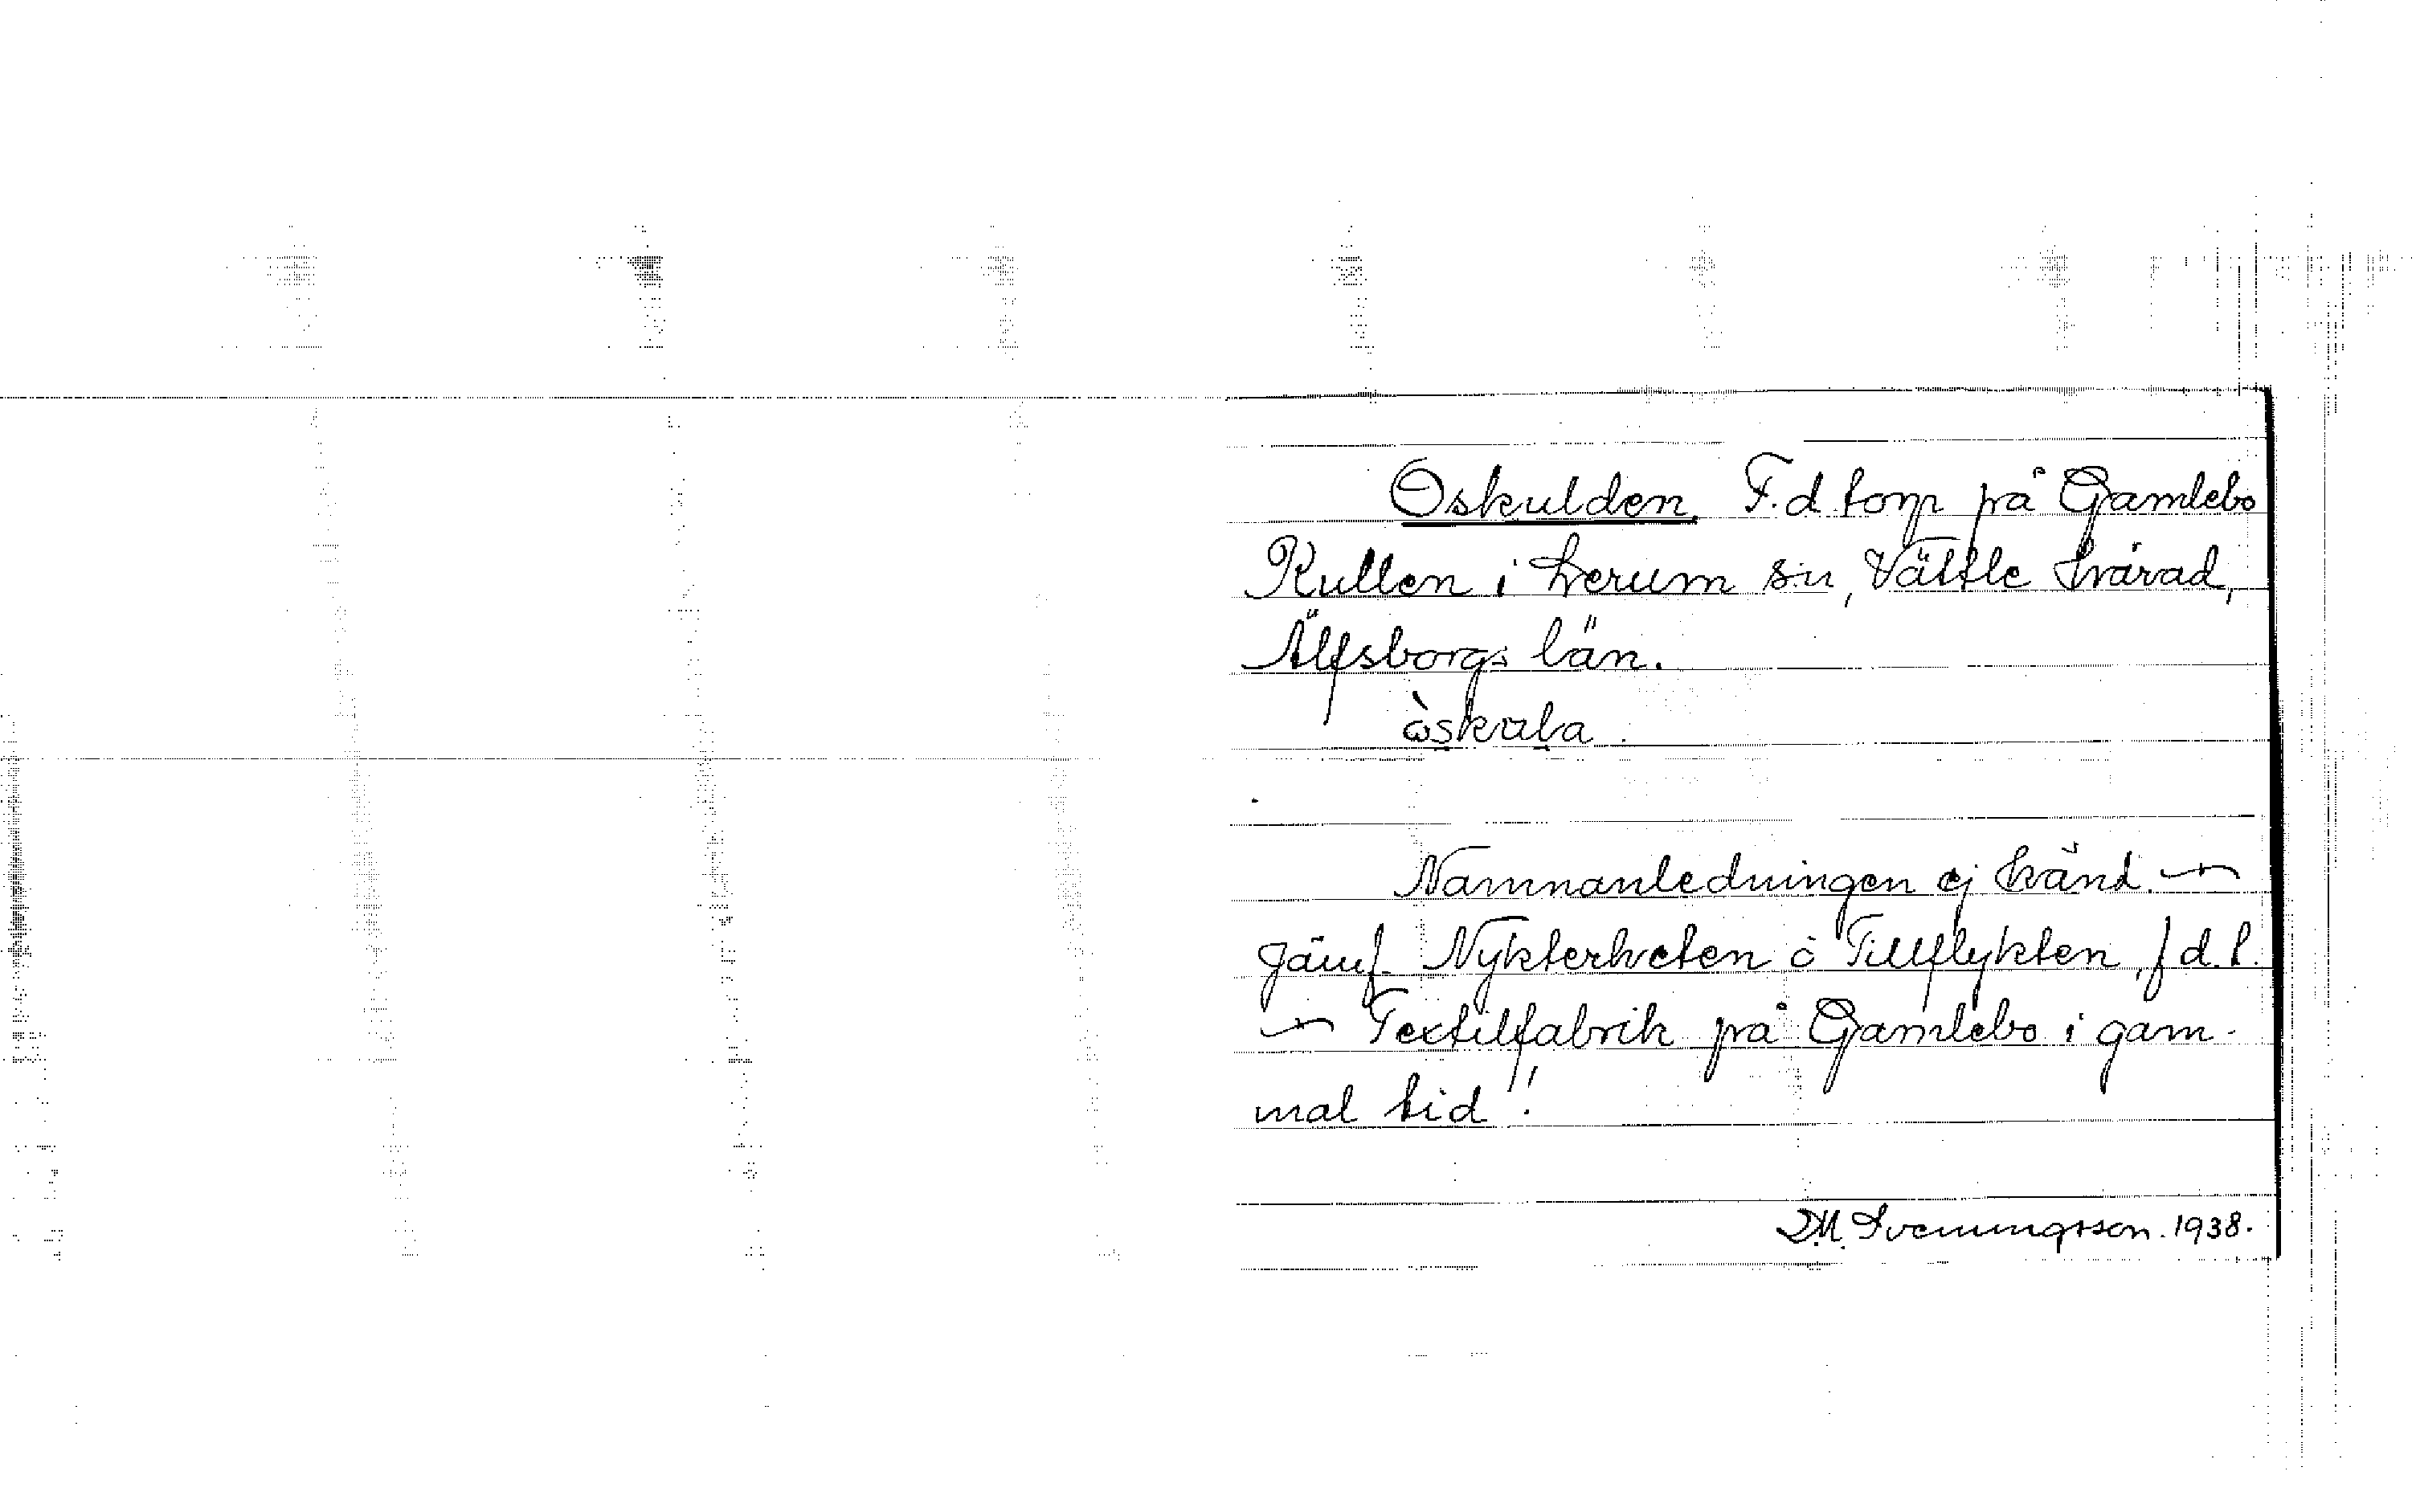 Oskulden. F.d torp på Gamlebo
Kullen i Lerum sn, Vättle härad,
Älfsborgs län.
Namnanledningen ej känd. —
Jämf. Nykterheten o Tillflykten, f d. t.
— Textilfabrik på Gamlebo i gam-
mal tid!
D.M. Svenungsson. 1938.